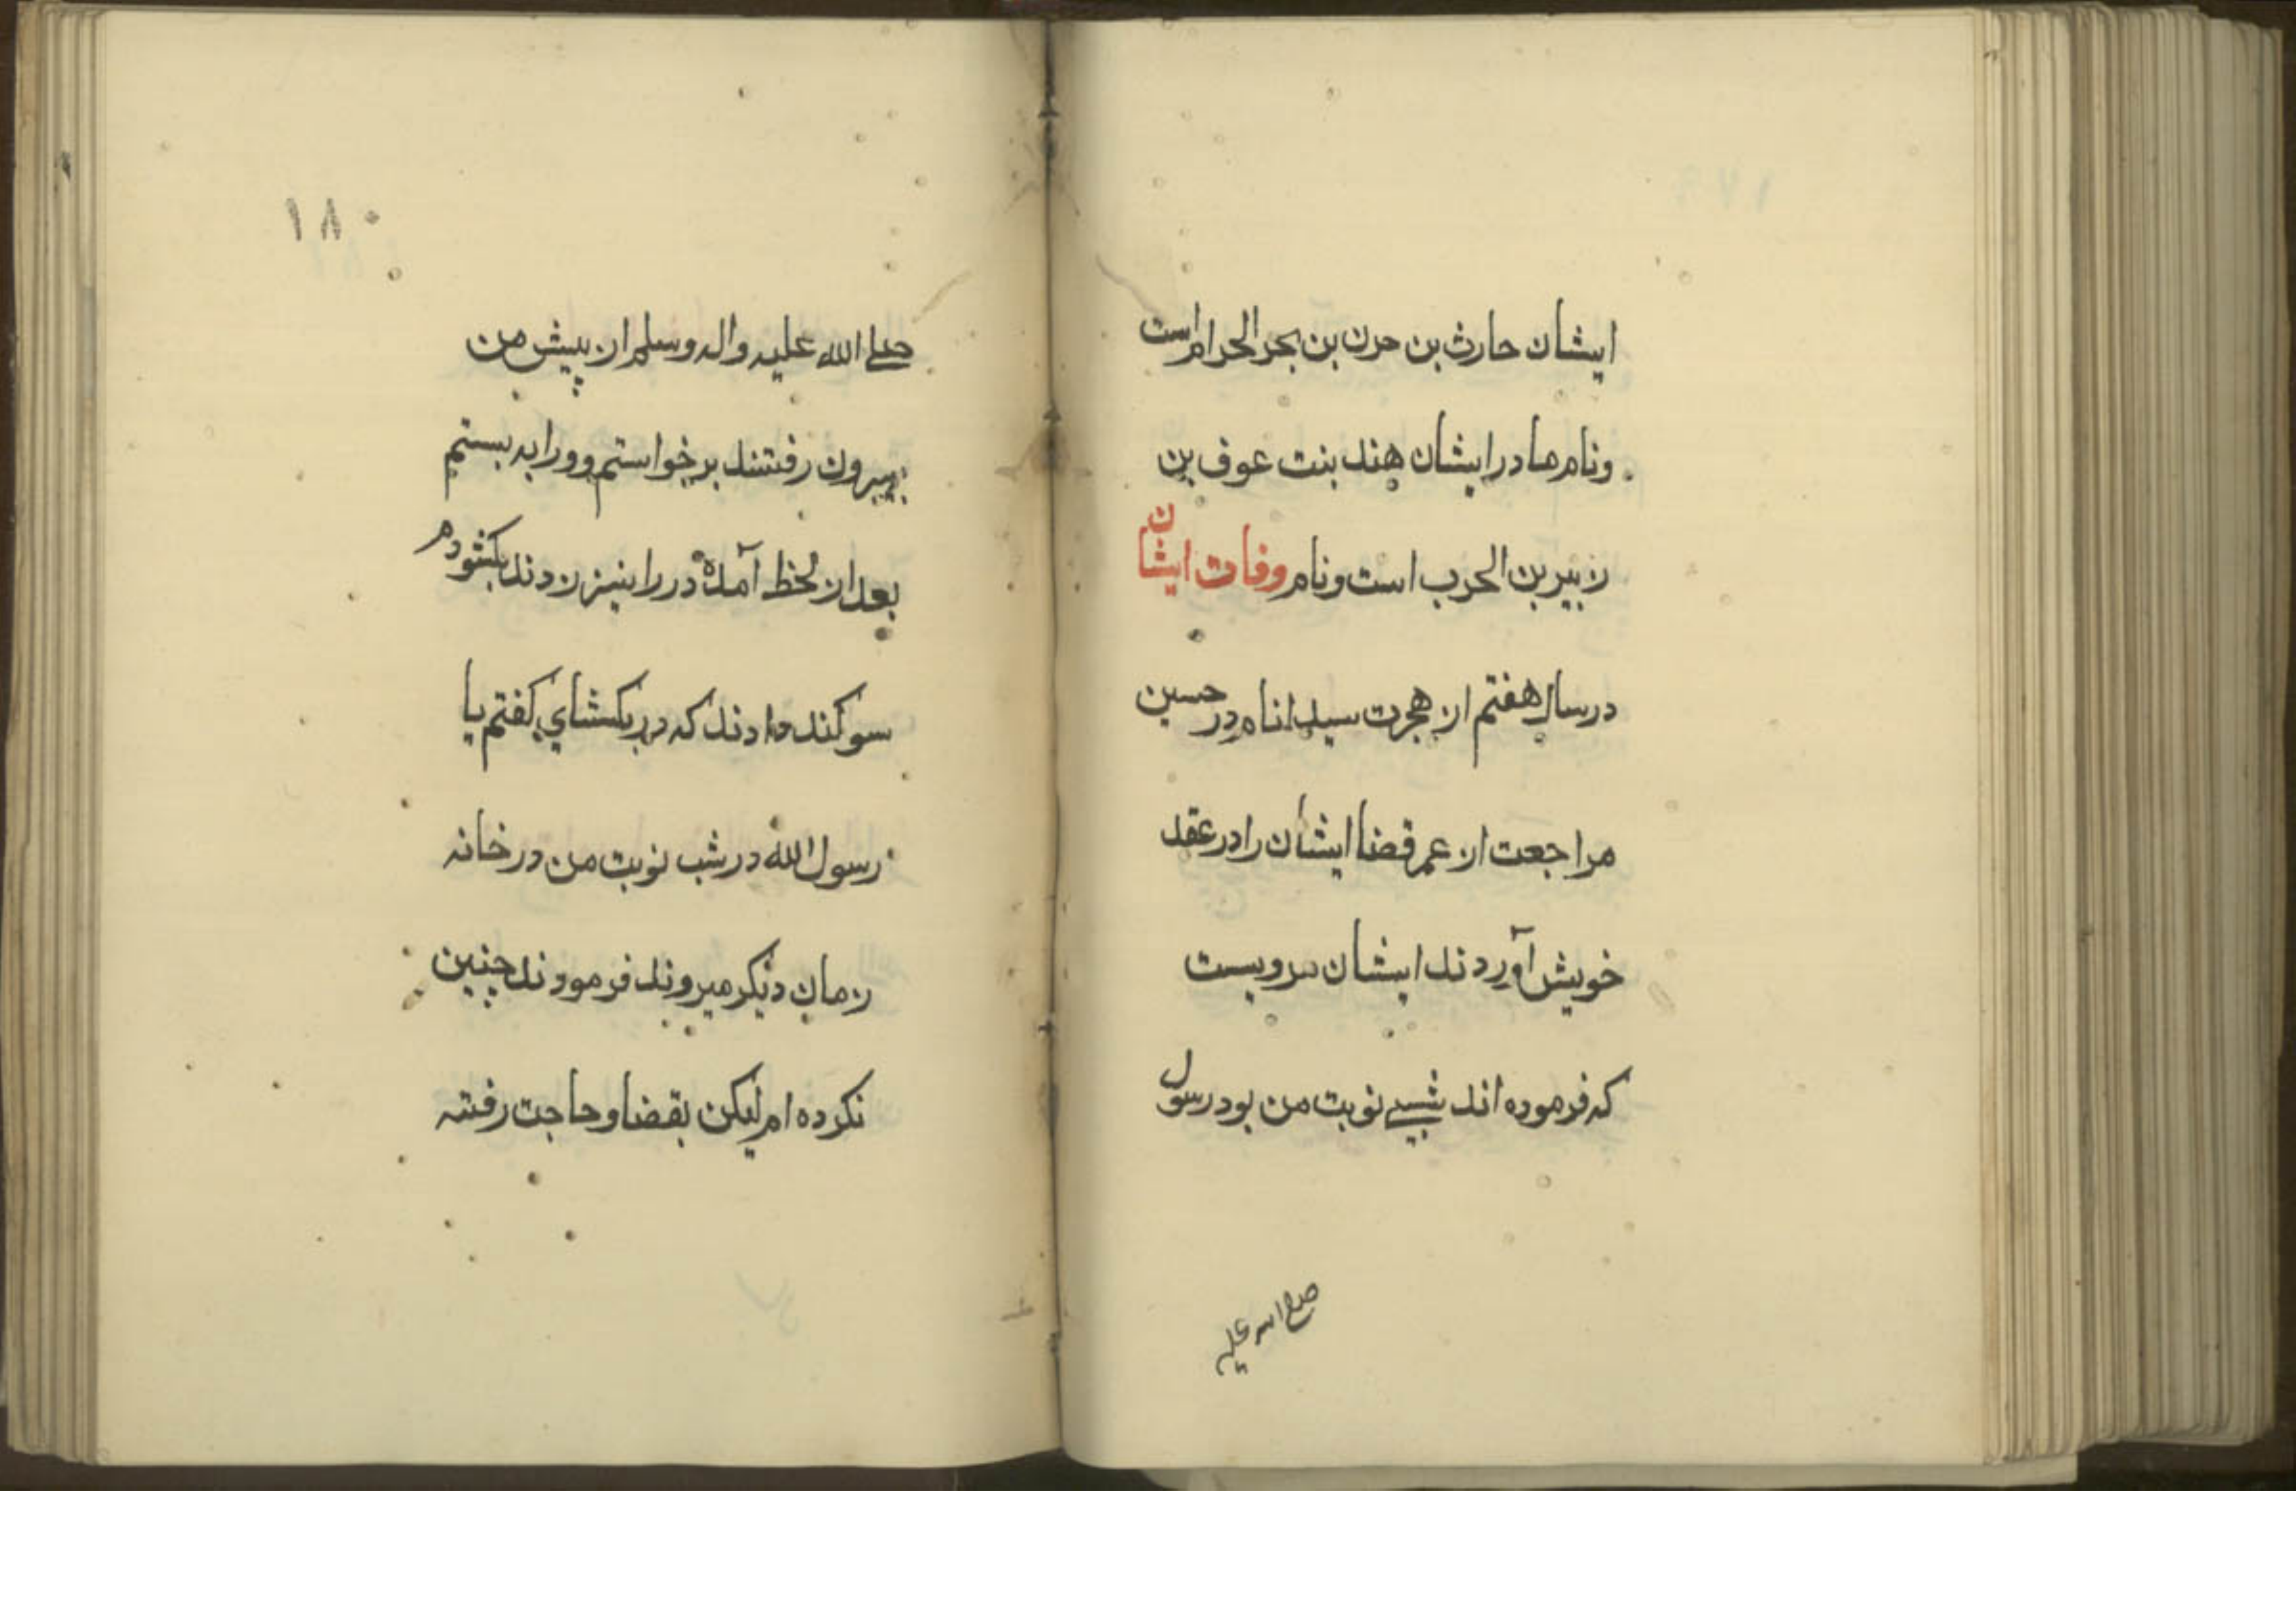 ایشان حارث بن حزن بن بجر الحرام است
ونام مادر ایشان هند بنت عوف بن
زبیر بن الحرب است ونام وفات ایشان
در سال هفتم از هجرت سید انام در حسین
مراجعت از عمر قضا ایشان را در عقد
خویش آوردند ایشان مرویست
که فرموده اند شبی نوبت من بود رسول
صلی الله علیه
۱۸۰
صلی الله علیه واله وسلم از پیش من
بیرون رفتند برخواستم وورا به بستم
بعد از لحظ آمده در را نیز زدند بکشودم
سوکند دادند که در بکشای کفتم یا
رسول الله در شب نوبت من در خانه
زمان دیکر میروند فرمودند چنین
نکرده ام لیکن بقضاو حاجت رفته